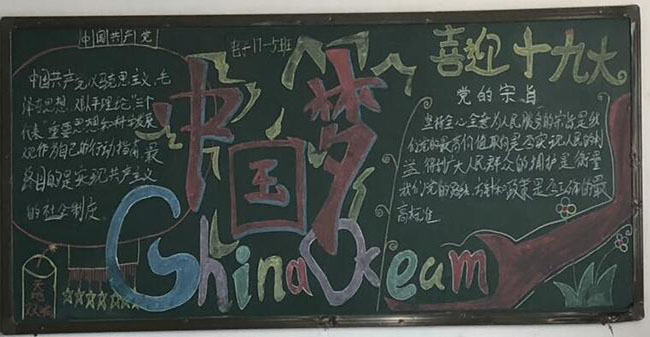 中国共产党
中国共产党以马克思主义,毛
泽东思想,邓小平理论,三个
代表重要思想和科学发展
观作为自己的行动指南,最
终目的是实现共产主义
的社会制度.
17-5班
中
国
梦
China Dream
喜迎十九大
党的宗旨
坚持全心全意为人民服务的宗旨是我
们党的最高价值取向是否实现人民的利
益得到广大人民群众的拥护是衡量
我们党的路线、方针和政策是否正确的最
高标准.